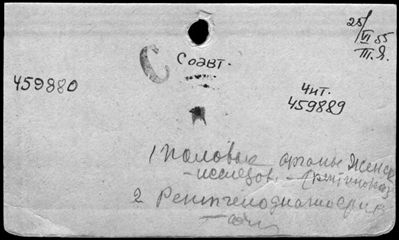 25/VI 55
III. Я.
С Соавт.
459880
Чит.
459889
1 Половые органы женск
- исследов. -
2 Рентгенодиагностика